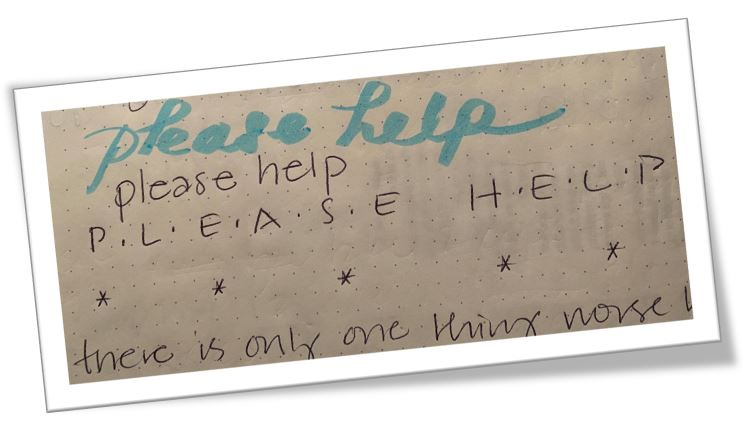 please help
please help
P.L.E.A.S.E H.E.L.P
* * * * *
there is only one thing worse